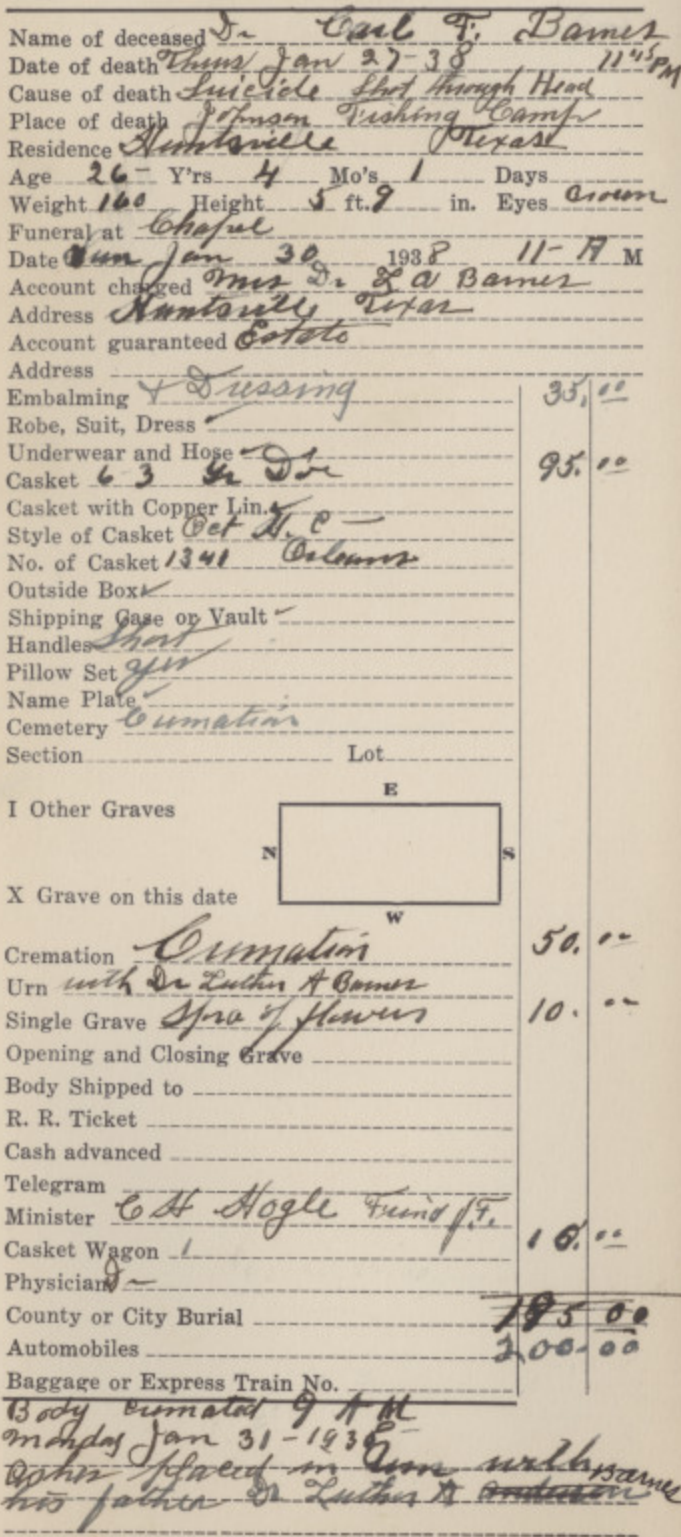 Name of deceased Dr Carl F. Barnes
Date of death Thurs Jan 27-38 11:45 PM
Cause of death Suicide Shot through Head
Place of death Johnson Fishing Camp
Residence Huntsville Texas
Age 26 - Y'rs 4 Mo's 1 Days
Weight 160 Height 5 ft. 9 in. Eyes Brown
Funeral at Chapel
Date Sun Jan 30 1938 11 - A M
Account charged Mrs Dr L A Barnes
Address Huntsville Texas
Account guaranteed Estate
Address
Embalming + Dressing 35.00
Robe, Suit, Dress
Underwear and Hose
Casket 6 3 95.00
Casket with Copper Lin.
Style of Casket Oct
No. of Casket 1341 Orleans
Outside Box
Shipping Case or Vault
Handles Short
Pillow Set yes
Name Plate
Cemetery Cremation
Section Lot
E
I Other Graves
N S
X Grave on this date
W
Cremation Cremation 50.00
Urn with Dr Luther A Barnes
Single Grave Spra of flowers 10.00
Opening and Closing Grave
Body Shipped to
R. R. Ticket
Cash advanced
Telegram
Minister C H Hogle
Casket Wagon 1 10.00
Physician
County or City Burial 195 00
Automobiles 200.00
Baggage or Express Train No.
Body cremated 9 A M
Monday Jan 31-1938
Ashes placed in Urn with
his father Dr Luther A Anderson Barnes